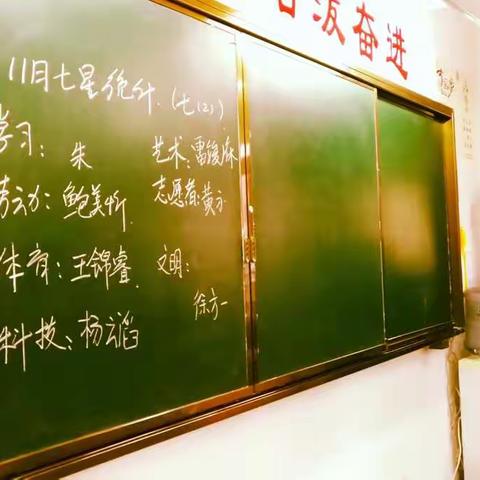 泼奋进
11月七星统计.(七(2))
学习: 朱 艺术:雷俊
劳动: 鲍美 志愿者:黄
体育: 王锦睿 文明:
徐方一
科技: 杨云滔